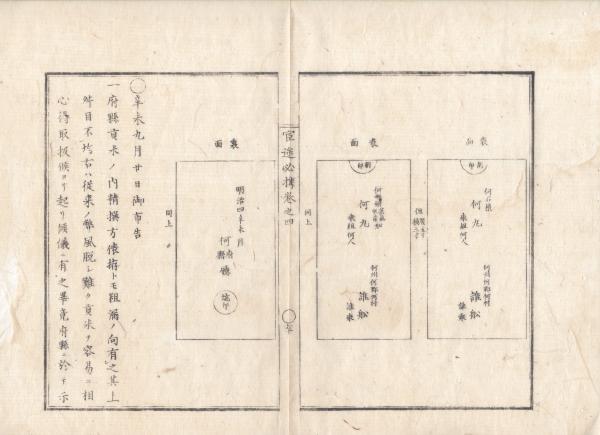 表面
割印
何石積
何丸
乗組何人
何州何郡何村
誰船
誰乗
表面
割印
何丸
乗組何人
何州何郡何村
誰船
誰乗
同上
官途必携巻之四
裏面
明治四辛未月
何府縣廳
同上
〇辛未九月廿日御布告
一府縣貢米ノ内精撰方懐 トモ粗漏ノ向有之其上
舛目不均右ハ従来ノ弊風脱シ難ク貢米ヲ容易ニ相
心得取扱候ヨリ起リ候儀ニ有之畢竟府縣ニ於テ示